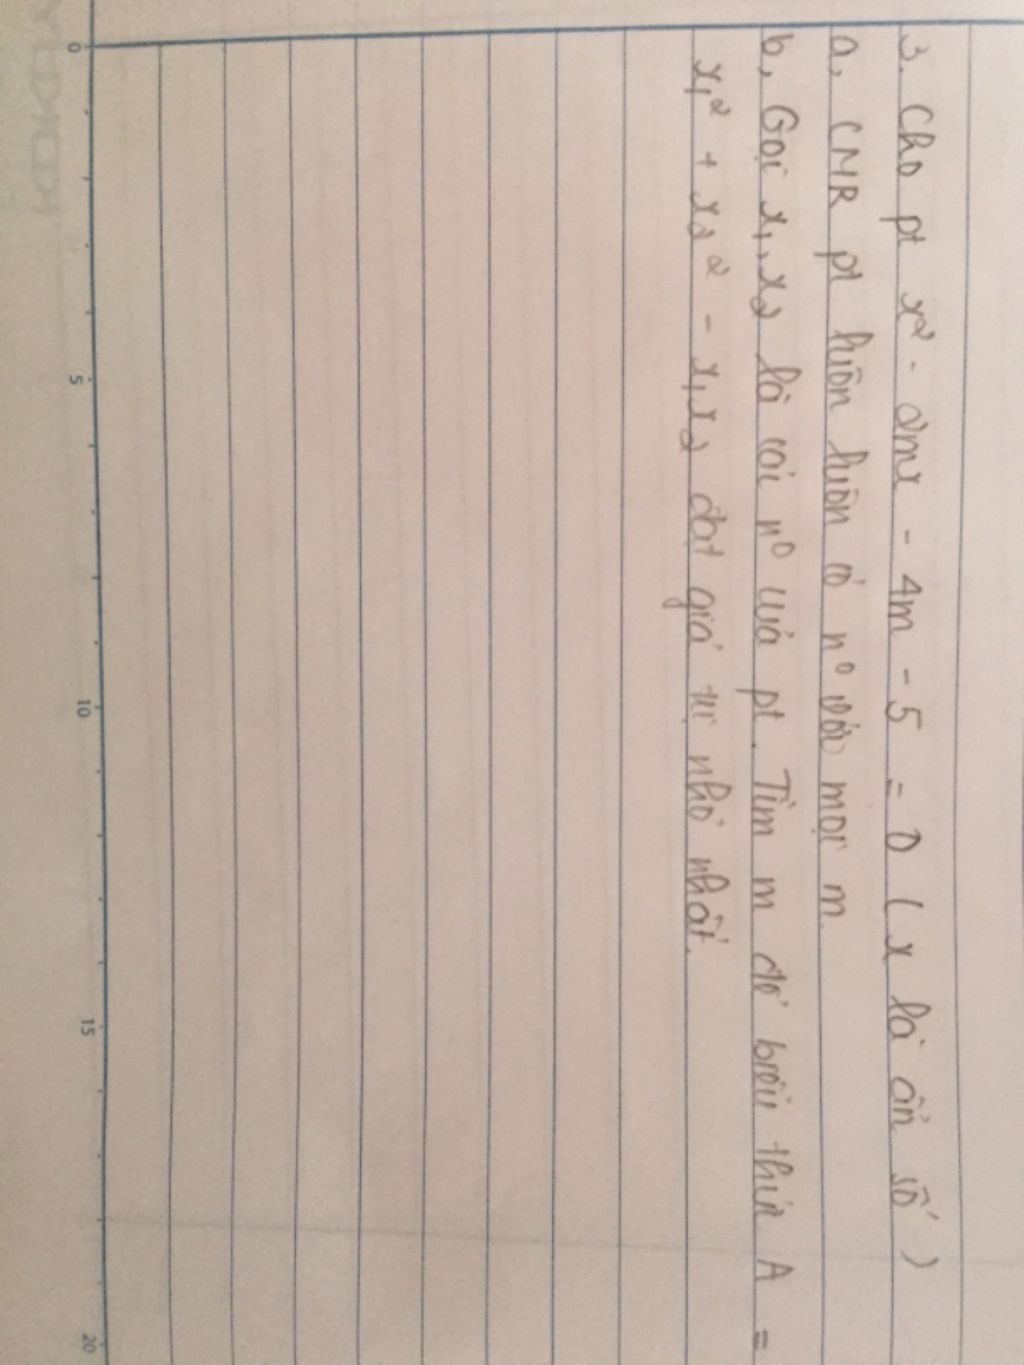 3. Cho pt x² - 2mx - 4m - 5 = 0 ( x là ẩn số )
a, CMR pt luôn luôn có n⁰ với mọi m.
b, Gọi x₁, x₂ là các n⁰ của pt. Tìm m để biểu thức A =
x₁² + x₂² - x₁x₂ đạt giá trị nhỏ nhất.
0 5 10 15 20